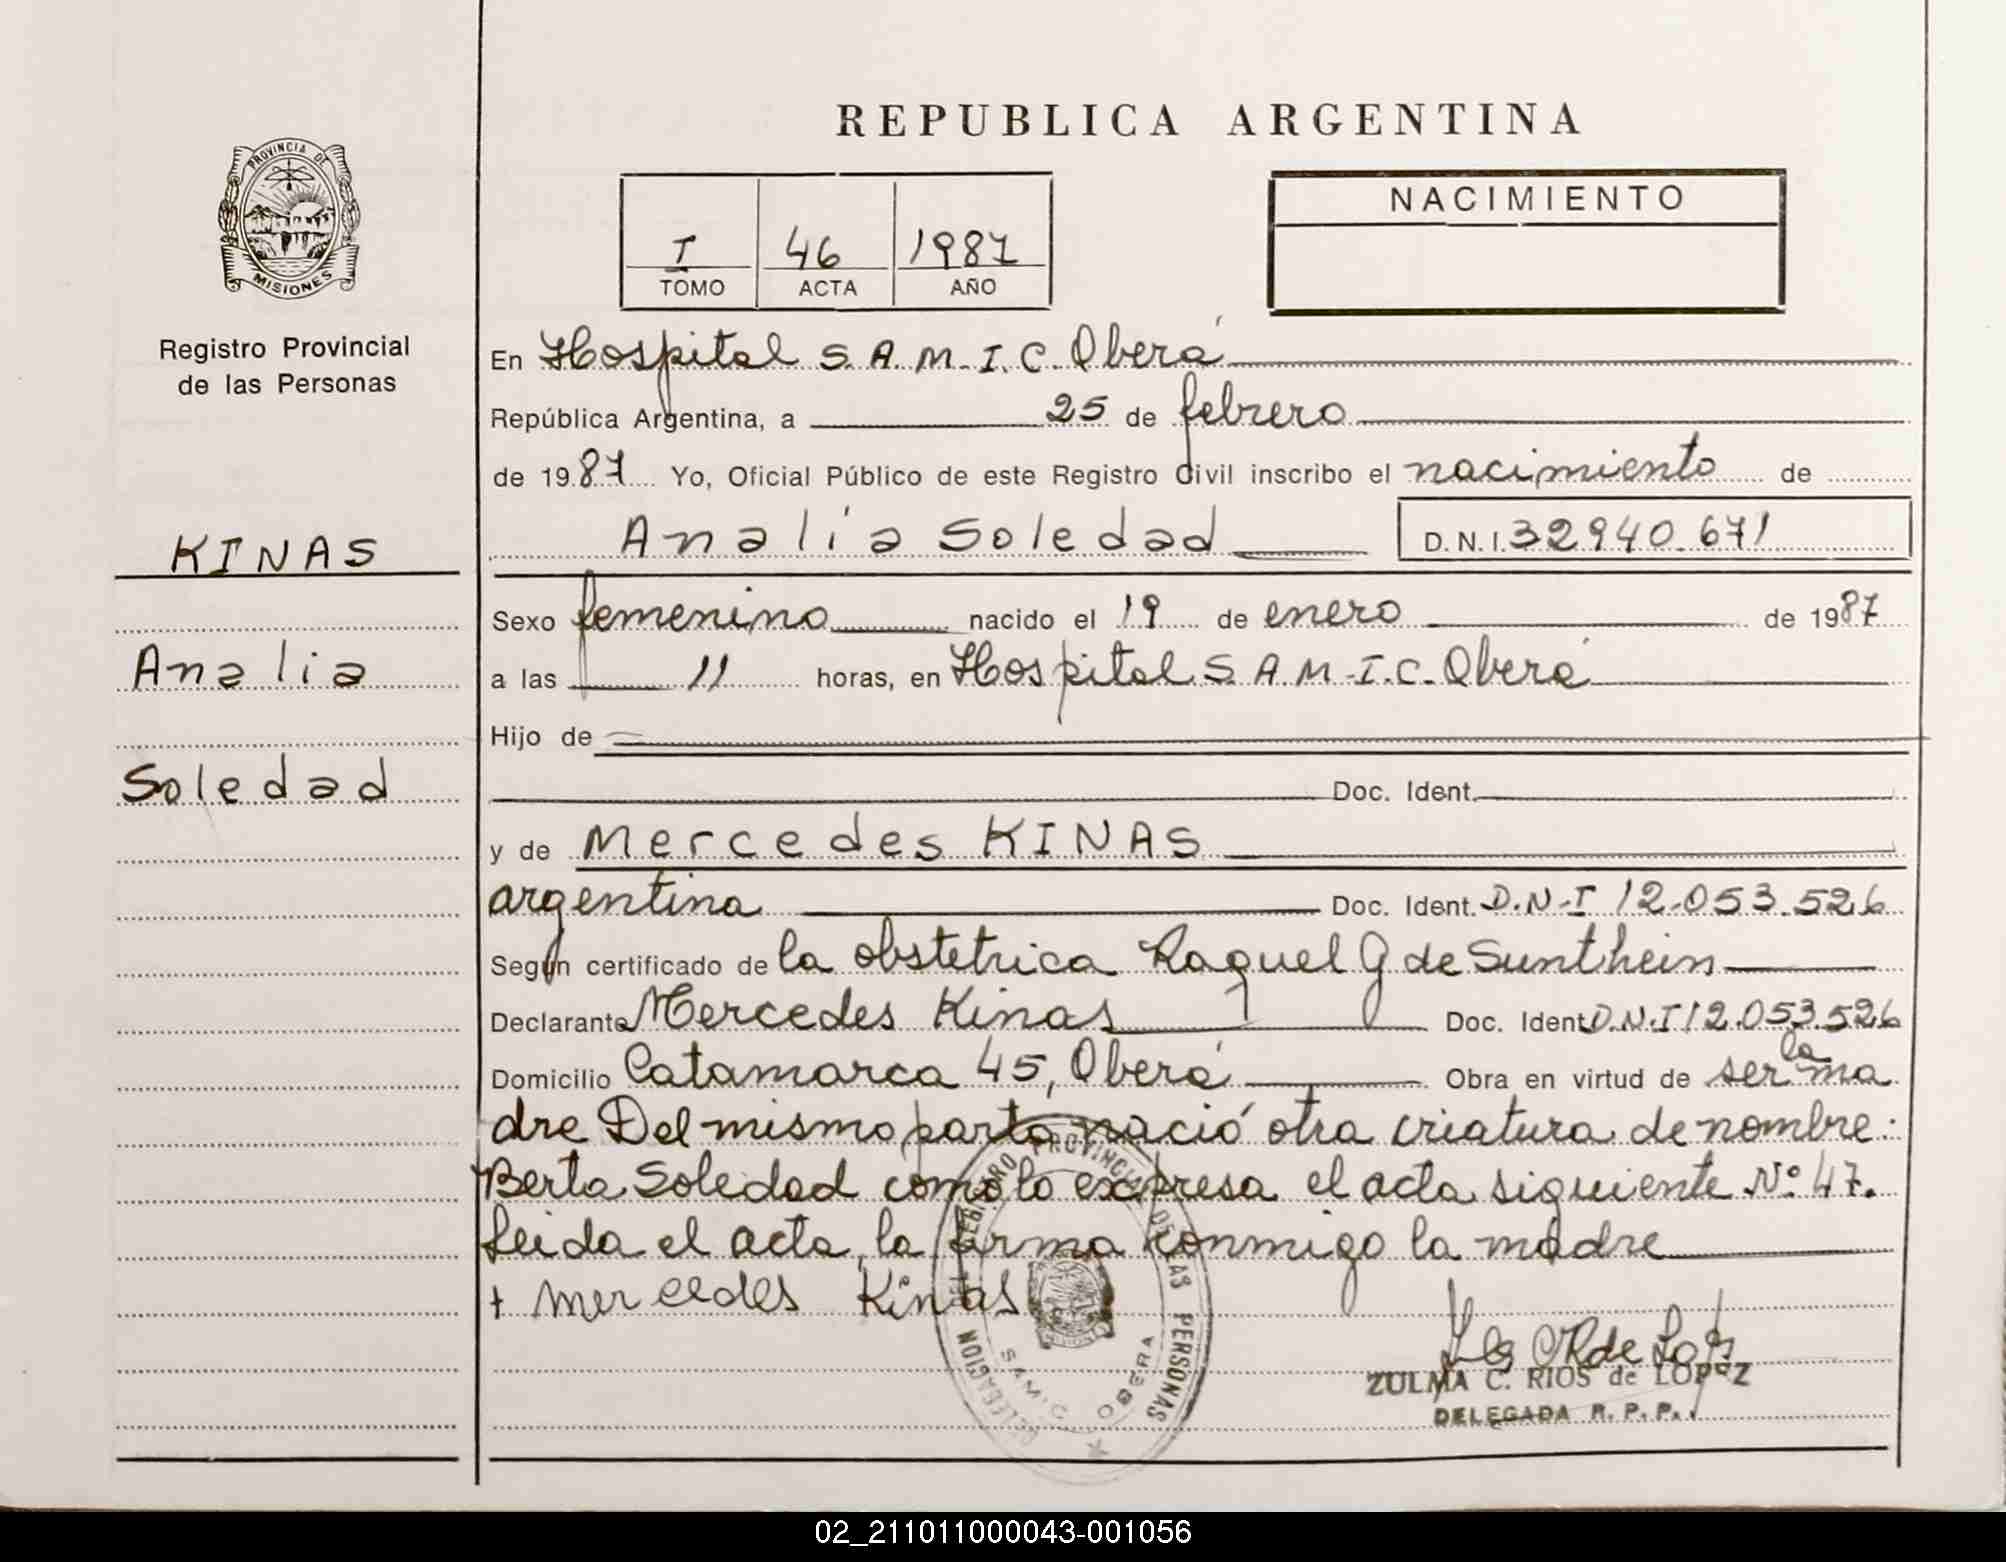 REPUBLICA ARGENTINA
PROVINCIA DE
MISIONES
Registro Provincial
de las Personas
I 46 1987
TOMO ACTA AÑO
NACIMIENTO
En Hospital S.A.M.I.C. Oberá
República Argentina, a 25 de febrero
de 1987 Yo, Oficial Público de este Registro Civil inscribo el nacimiento de
KINAS
Analía Soledad D.N.I. 32940.671
Sexo femenino nacido el 19 de enero de 1987
Analia
a las 11 horas, en Hospital S.A.M.I.C. Oberá
Hijo de
Soledad
Doc. Ident.
y de Mercedes KINAS
argentina Doc. Ident. D.N.I 12.053.526
Según certificado de la obstetrica Raquel G de Sunthein
Declarante Mercedes Kinas Doc. Ident D.N.I 12.053.526
Domicilio Catamarca 45, Oberá Obra en virtud de ser la ma
dre Del mismo parto nació otra criatura de nombre:
Berta Soledad como lo expresa el acta siguiente Nº 47.
Leida el acta, la firma conmigo la madre
+ Mercedes Kinas
DELEGACION REGISTRO PROVINCIAL DE LAS PERSONAS
SAMIC OBERA
ZULMA C. RIOS de LOPEZ
DELEGADA R.P.P.
02_211011000043-001056